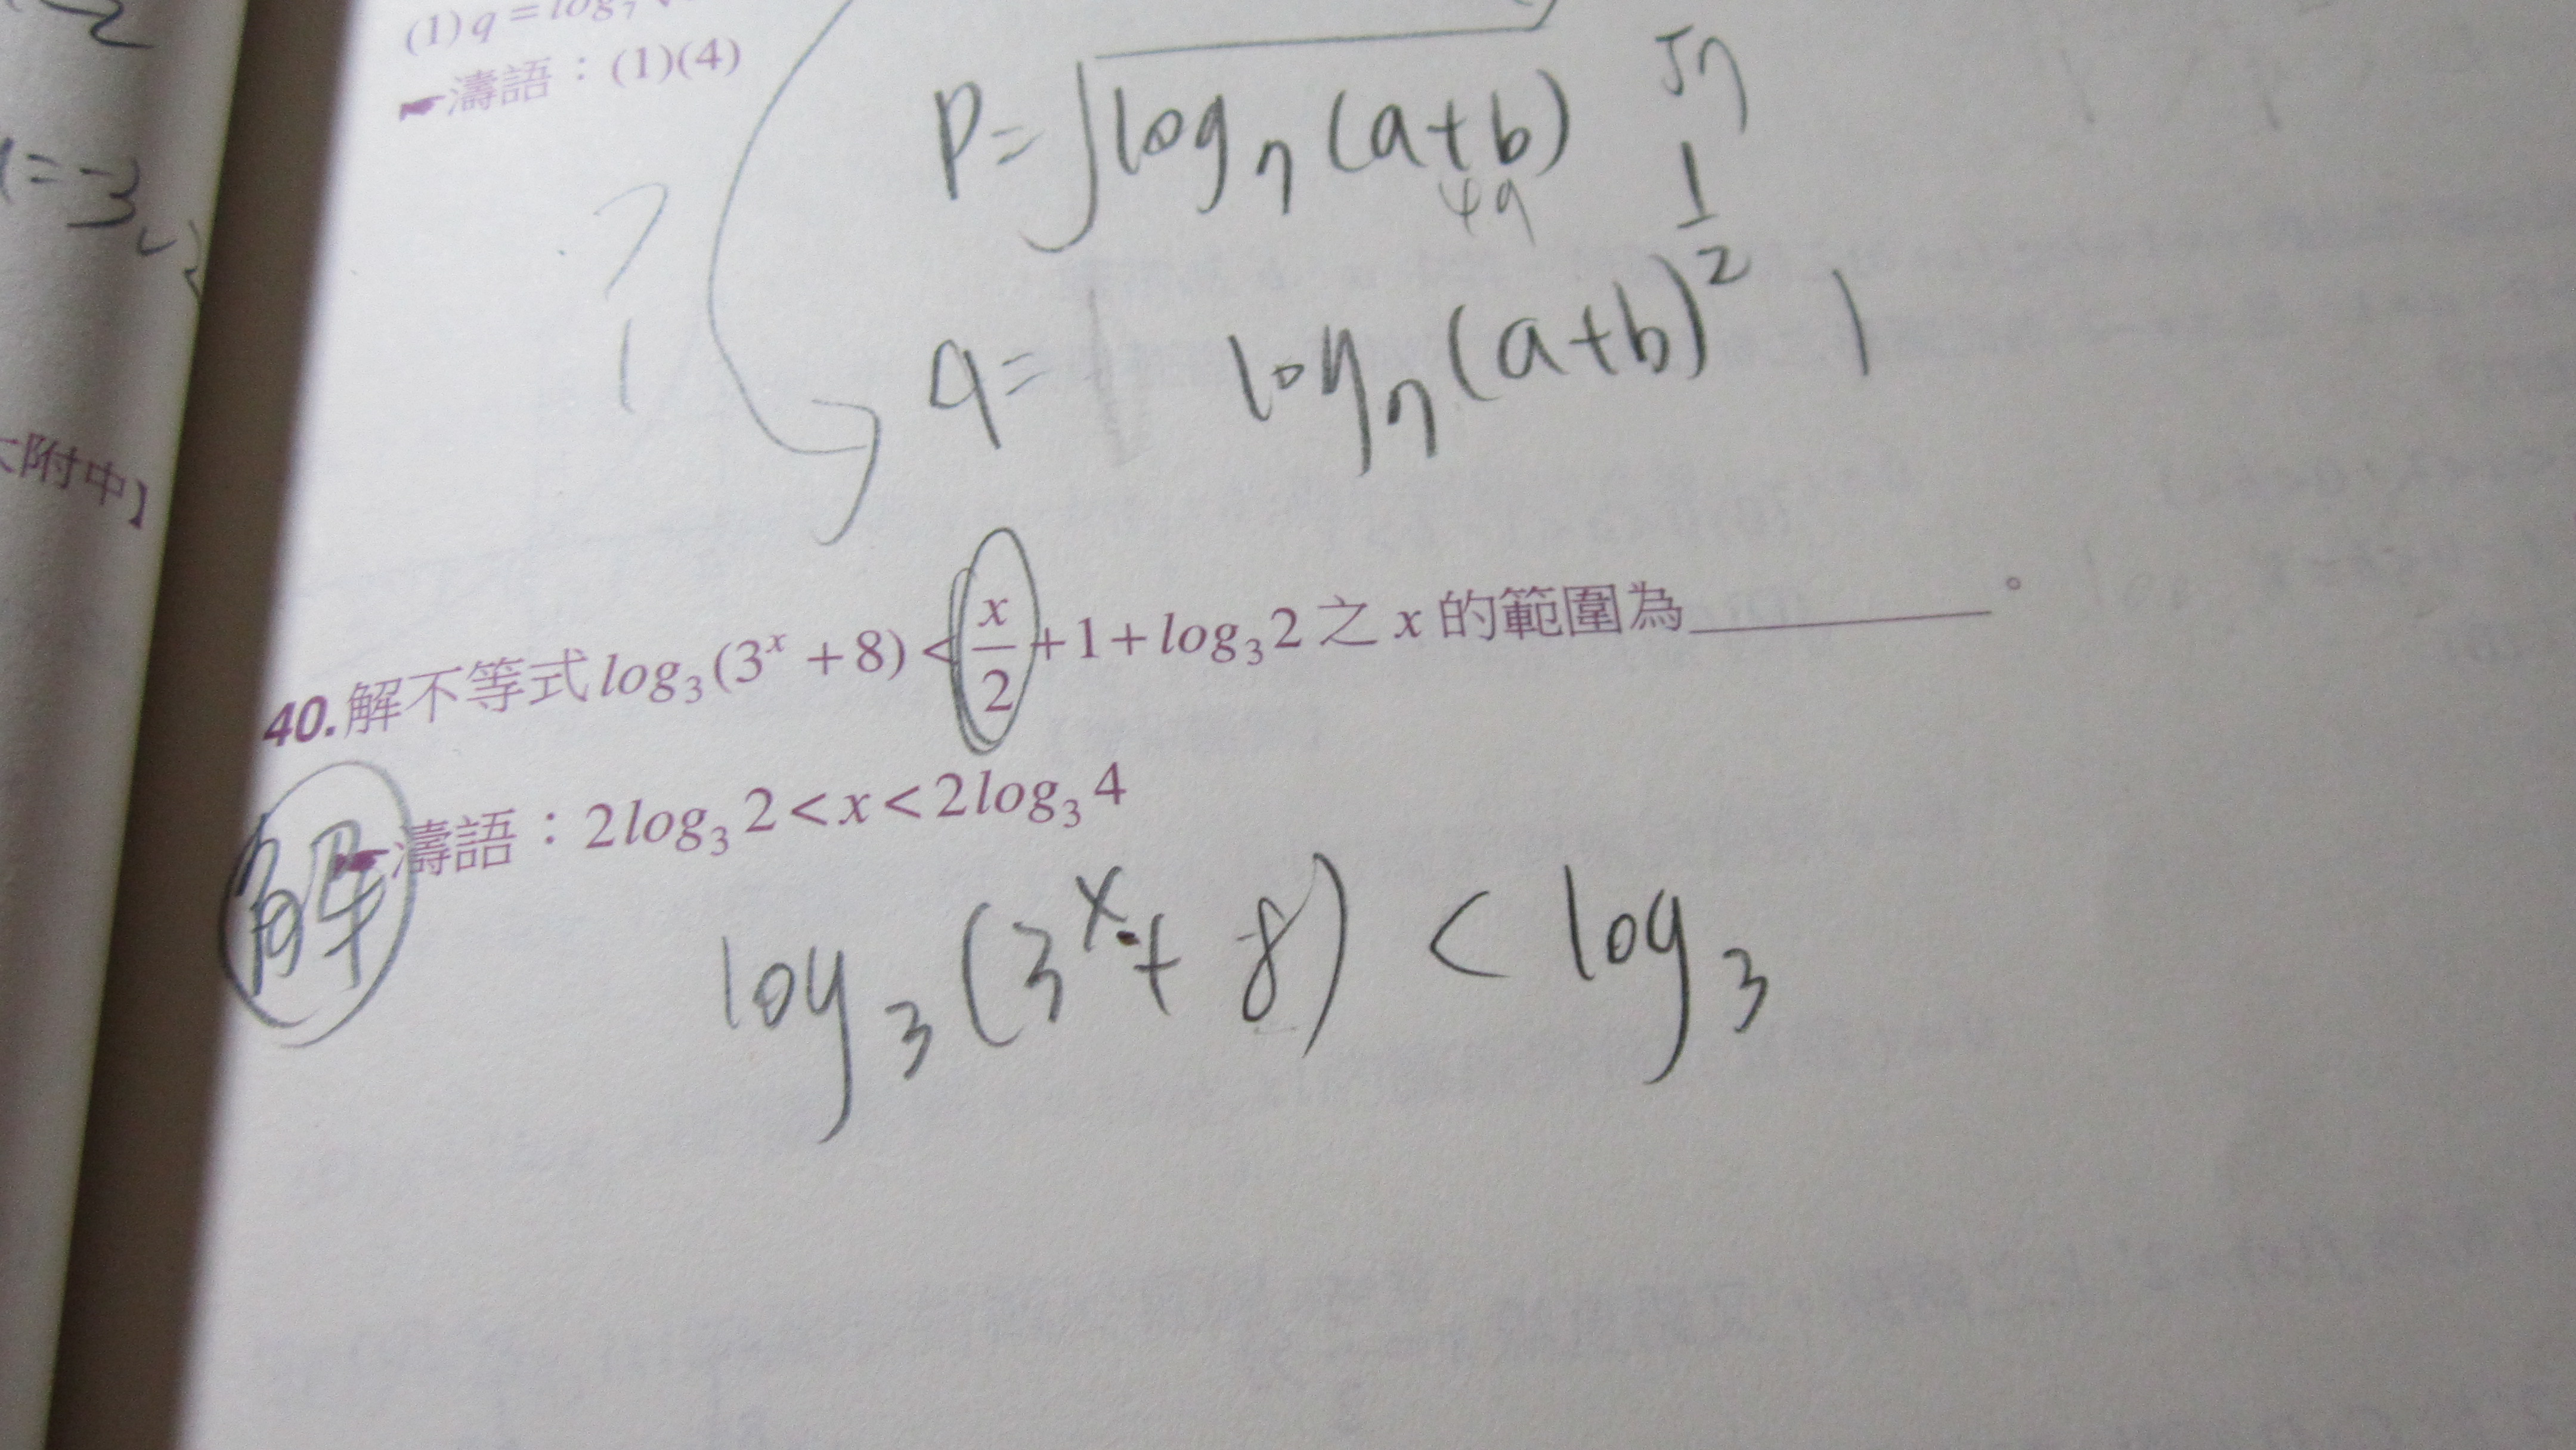 (1) q = log₇
☛濤語：(1)(4)
P = √log₇(a+b) √7
49
1
2
q = log₇(a+b)² 1
1 = 3
大附中】
40.解不等式 log₃(3ˣ + 8) < x/2 + 1 + log₃2 之 x 的範圍為________。
☛濤語：2log₃2 < x < 2log₃4
解
log₃(3ˣ + 8) < log₃